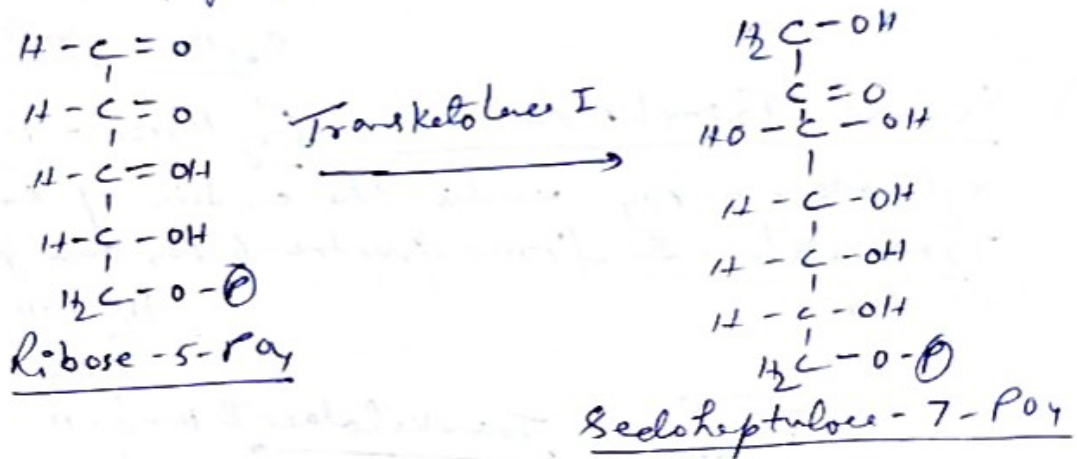 H - C = O
H - C = O
H - C = OH
H - C - OH
H2 C - O - P
Ribose - 5 - PO4
Transketolase I.
H2 C - OH
C = O
HO - C - OH
H - C - OH
H - C - OH
H - C - OH
H2 C - O - P
Sedoheptulose - 7 - PO4